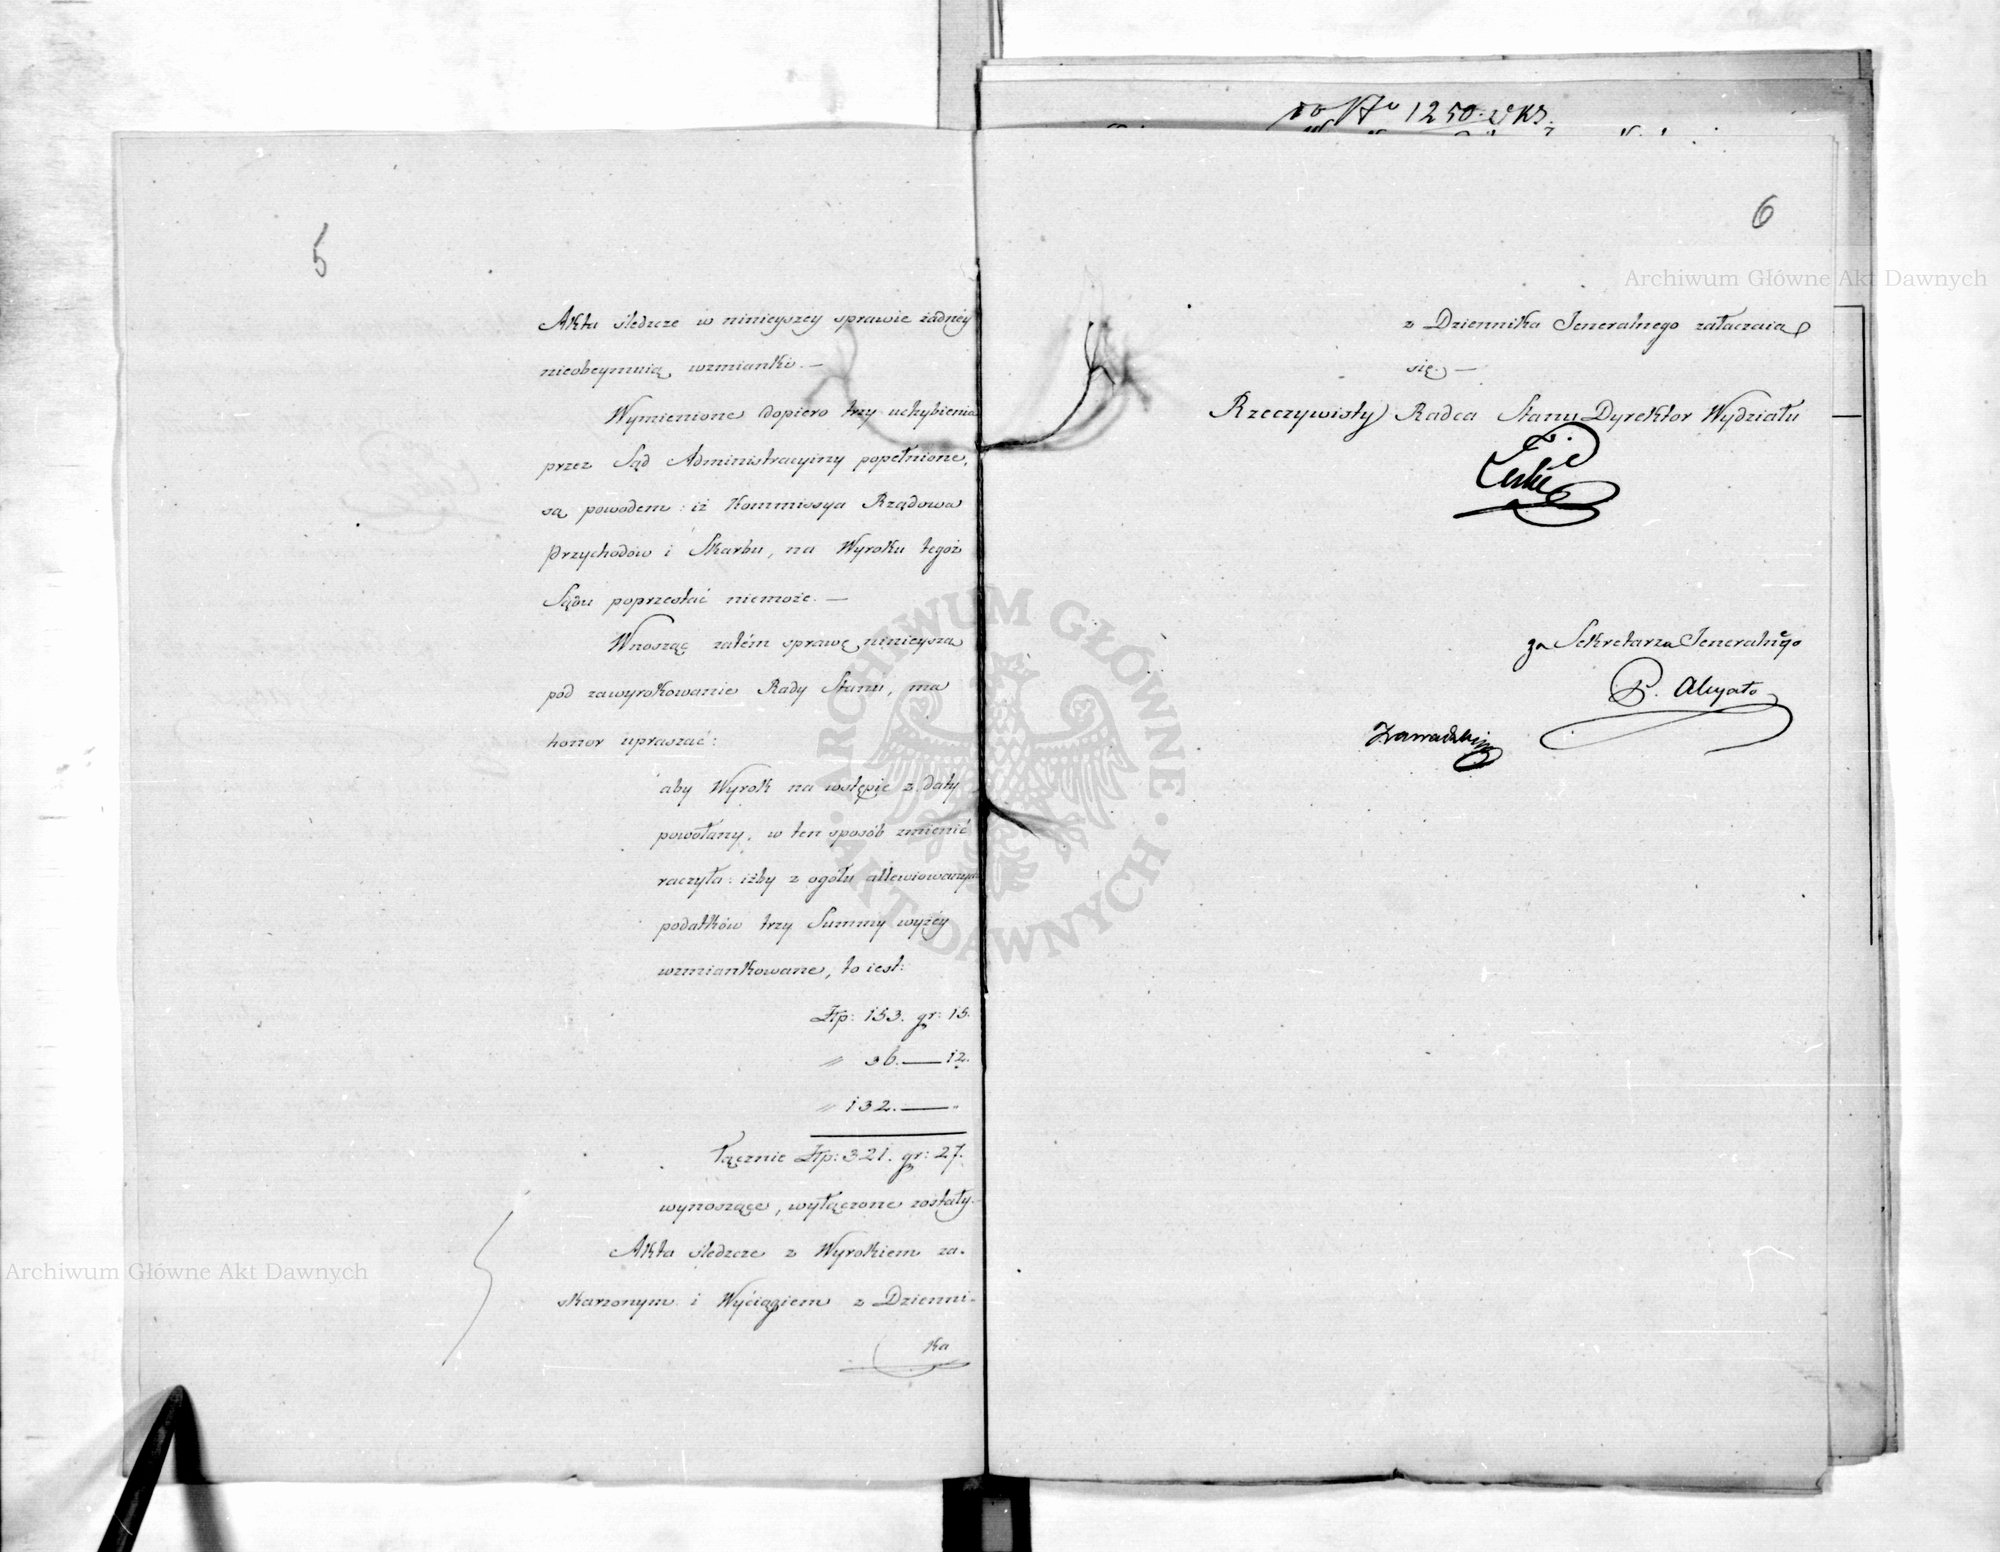 5
Akta śledzcze w ninieyszey sprawie żadnéy
nieobeymuią wzmianki. —
Wymienione dopiero trzy uchybienia
przez Sąd Administracyiny popełnione,
są powodem: iż Kommissya Rządowa
Przychodów i Skarbu, na Wyroku tegoż
Sądu poprzestać niemoże. —
Wnosząc zatém sprawę ninieyszą
pód zawyrokowanie Rady Stanu, ma
honor upraszać:
aby Wyrok na wstępie z daty
powołany, w ten sposób zmienić
raczyła: iżby z ogółu allewiowanych
podatków trzy Summy wyżéy
wzmiankowane, to iest:
Złp: 153. gr: 15.
" 36. — 12.
" 132. — "
łącznie Złp: 321. gr: 27.
wynoszące, wyłączone zostały.
Akta śledzcze z Wyrokiem za-
skarżonym i Wyciągiem z Dzienni-
ka
No 1250
6
z Dziennika Jeneralnego załączaią
się. —
Rzeczywisty Radca Stanu Dyrektor Wydziału
za Sekretarza Jeneralnego
Zawadzki
Archiwum Główne Akt Dawnych
Archiwum Główne Akt Dawnych
ARCHIWUM GŁÓWNE · AKT DAWNYCH ·